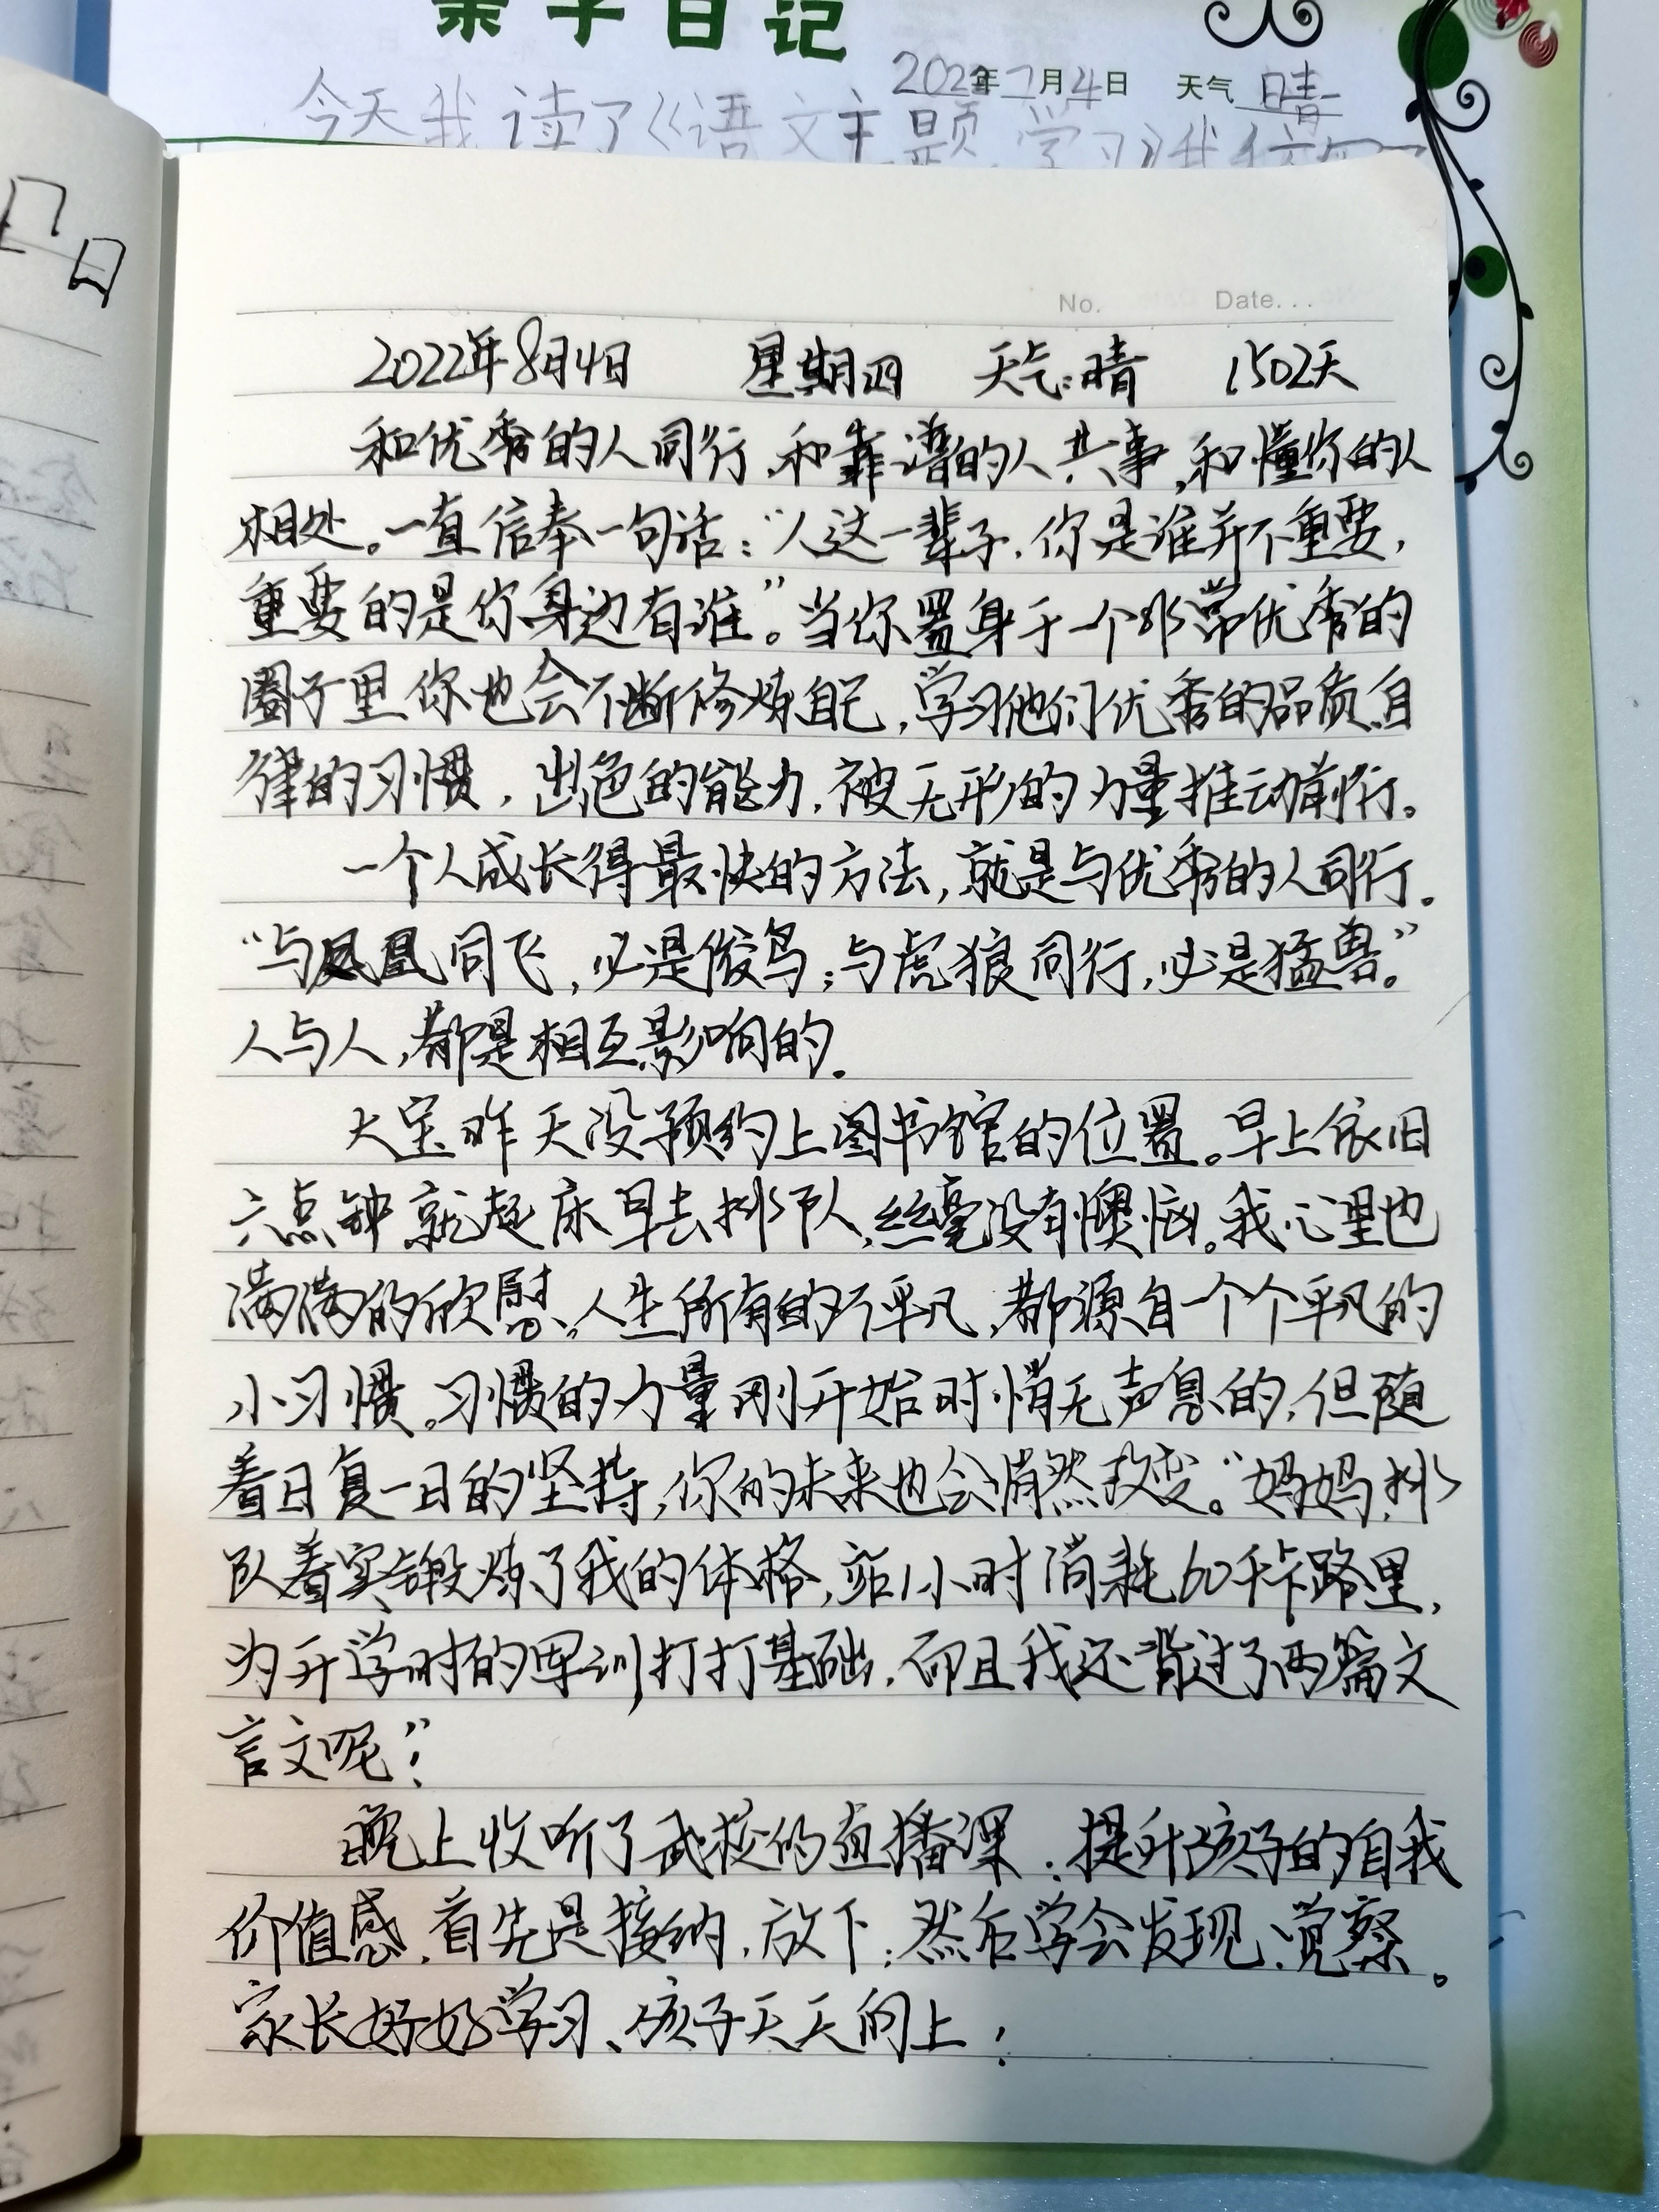 亲子日记
2022年 月4日 天气 晴
今天我读了《语文主题学习》我
日
No. Date...
2022年8月4日 星期四 天气:晴 1502天
和优秀的人同行,和靠谱的人共事,和懂你的人
相处。一直信奉一句话:“人这一辈子,你是谁并不重要,
重要的是你身边有谁”。当你置身于一个非常优秀的
圈子里你也会不断修炼自己,学习他们优秀的品质,自
律的习惯,出色的能力,被无形的力量推动前行。
一个人成长得最快的方法,就是与优秀的人同行。
“与凤凰同飞,必是俊鸟;与虎狼同行,必是猛兽。”
人与人,都是相互影响的。
大宝昨天没预约上图书馆的位置。早上依旧
六点钟就起床早去排队,丝毫没有懊恼。我心里也
满满的欣慰。人生所有的不平凡,都源自一个个平凡的
小习惯。习惯的力量刚开始时悄无声息的,但随
着日复一日的坚持,你的未来也会悄然改变。“妈妈,排
队着实锻炼了我的体格,站1小时消耗60千卡路里,
为开学时的军训打打基础,而且我还背过了两篇文
言文呢”!
晚上收听了武校的直播课:提升孩子的自我
价值感,首先是接纳,放下;然后学会发现、觉察。
家长好好学习、孩子天天向上!